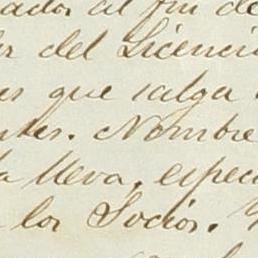 al fin de
del Licenci
que salga
Nombre
lleva, especi
los Socios.